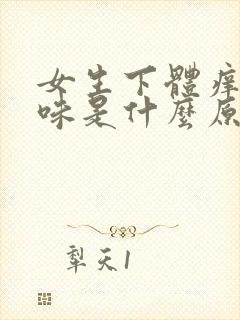 女生下體痒
味是什麼原
犁天1